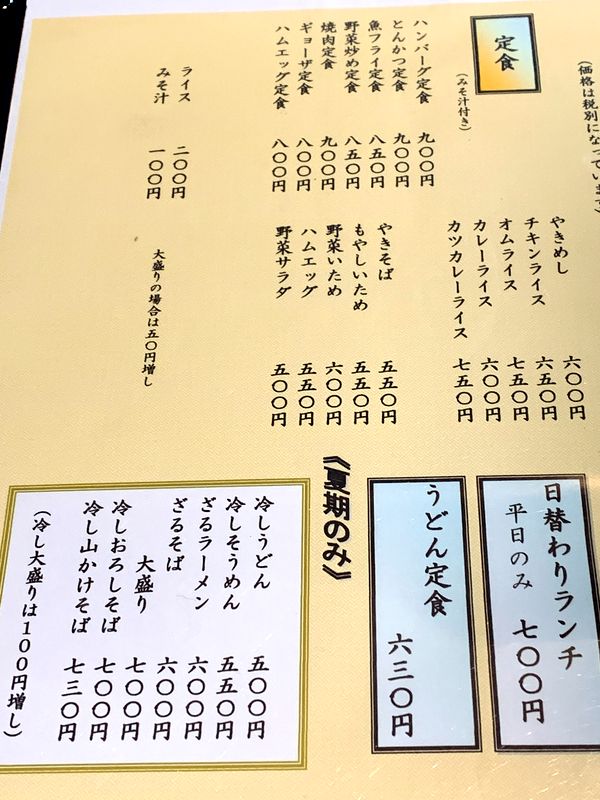 (価格は税別になっています)
定食
(みそ汁付き)
ハンバーグ定食 九〇〇円
とんかつ定食 九〇〇円
魚フライ定食 八五〇円
野菜炒め定食 八五〇円
焼肉定食 九〇〇円
ギョーザ定食 八〇〇円
ハムエッグ定食 八〇〇円
ライス 二〇〇円
みそ汁 一〇〇円
やきめし 六〇〇円
チキンライス 六五〇円
オムライス 七五〇円
カレーライス 六〇〇円
カツカレーライス 七五〇円
やきそば 五五〇円
もやしいため 五五〇円
野菜いため 六〇〇円
ハムエッグ 五五〇円
野菜サラダ 五〇〇円
大盛りの場合は五〇円増し
日替わりランチ
平日のみ 七〇〇円
うどん定食
六三〇円
《夏期のみ》
冷しうどん 五〇〇円
冷しそうめん 五五〇円
ざるラーメン 六〇〇円
ざるそば 六〇〇円
大盛り 七〇〇円
冷しおろしそば 七〇〇円
冷し山かけそば 七三〇円
(冷し大盛りは100円増し)